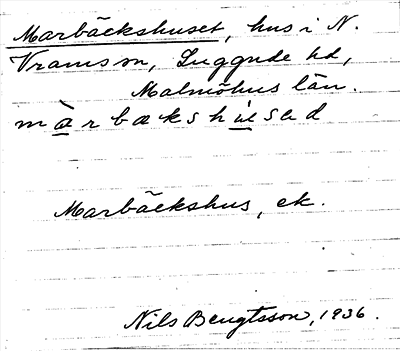 Marbäckshuset, hus i N.
Vrams sn, Luggude hd,
Malmöhus län.
màrbækshùsəd
Marbäckshus, ek.
Nils Bengtsson, 1936.